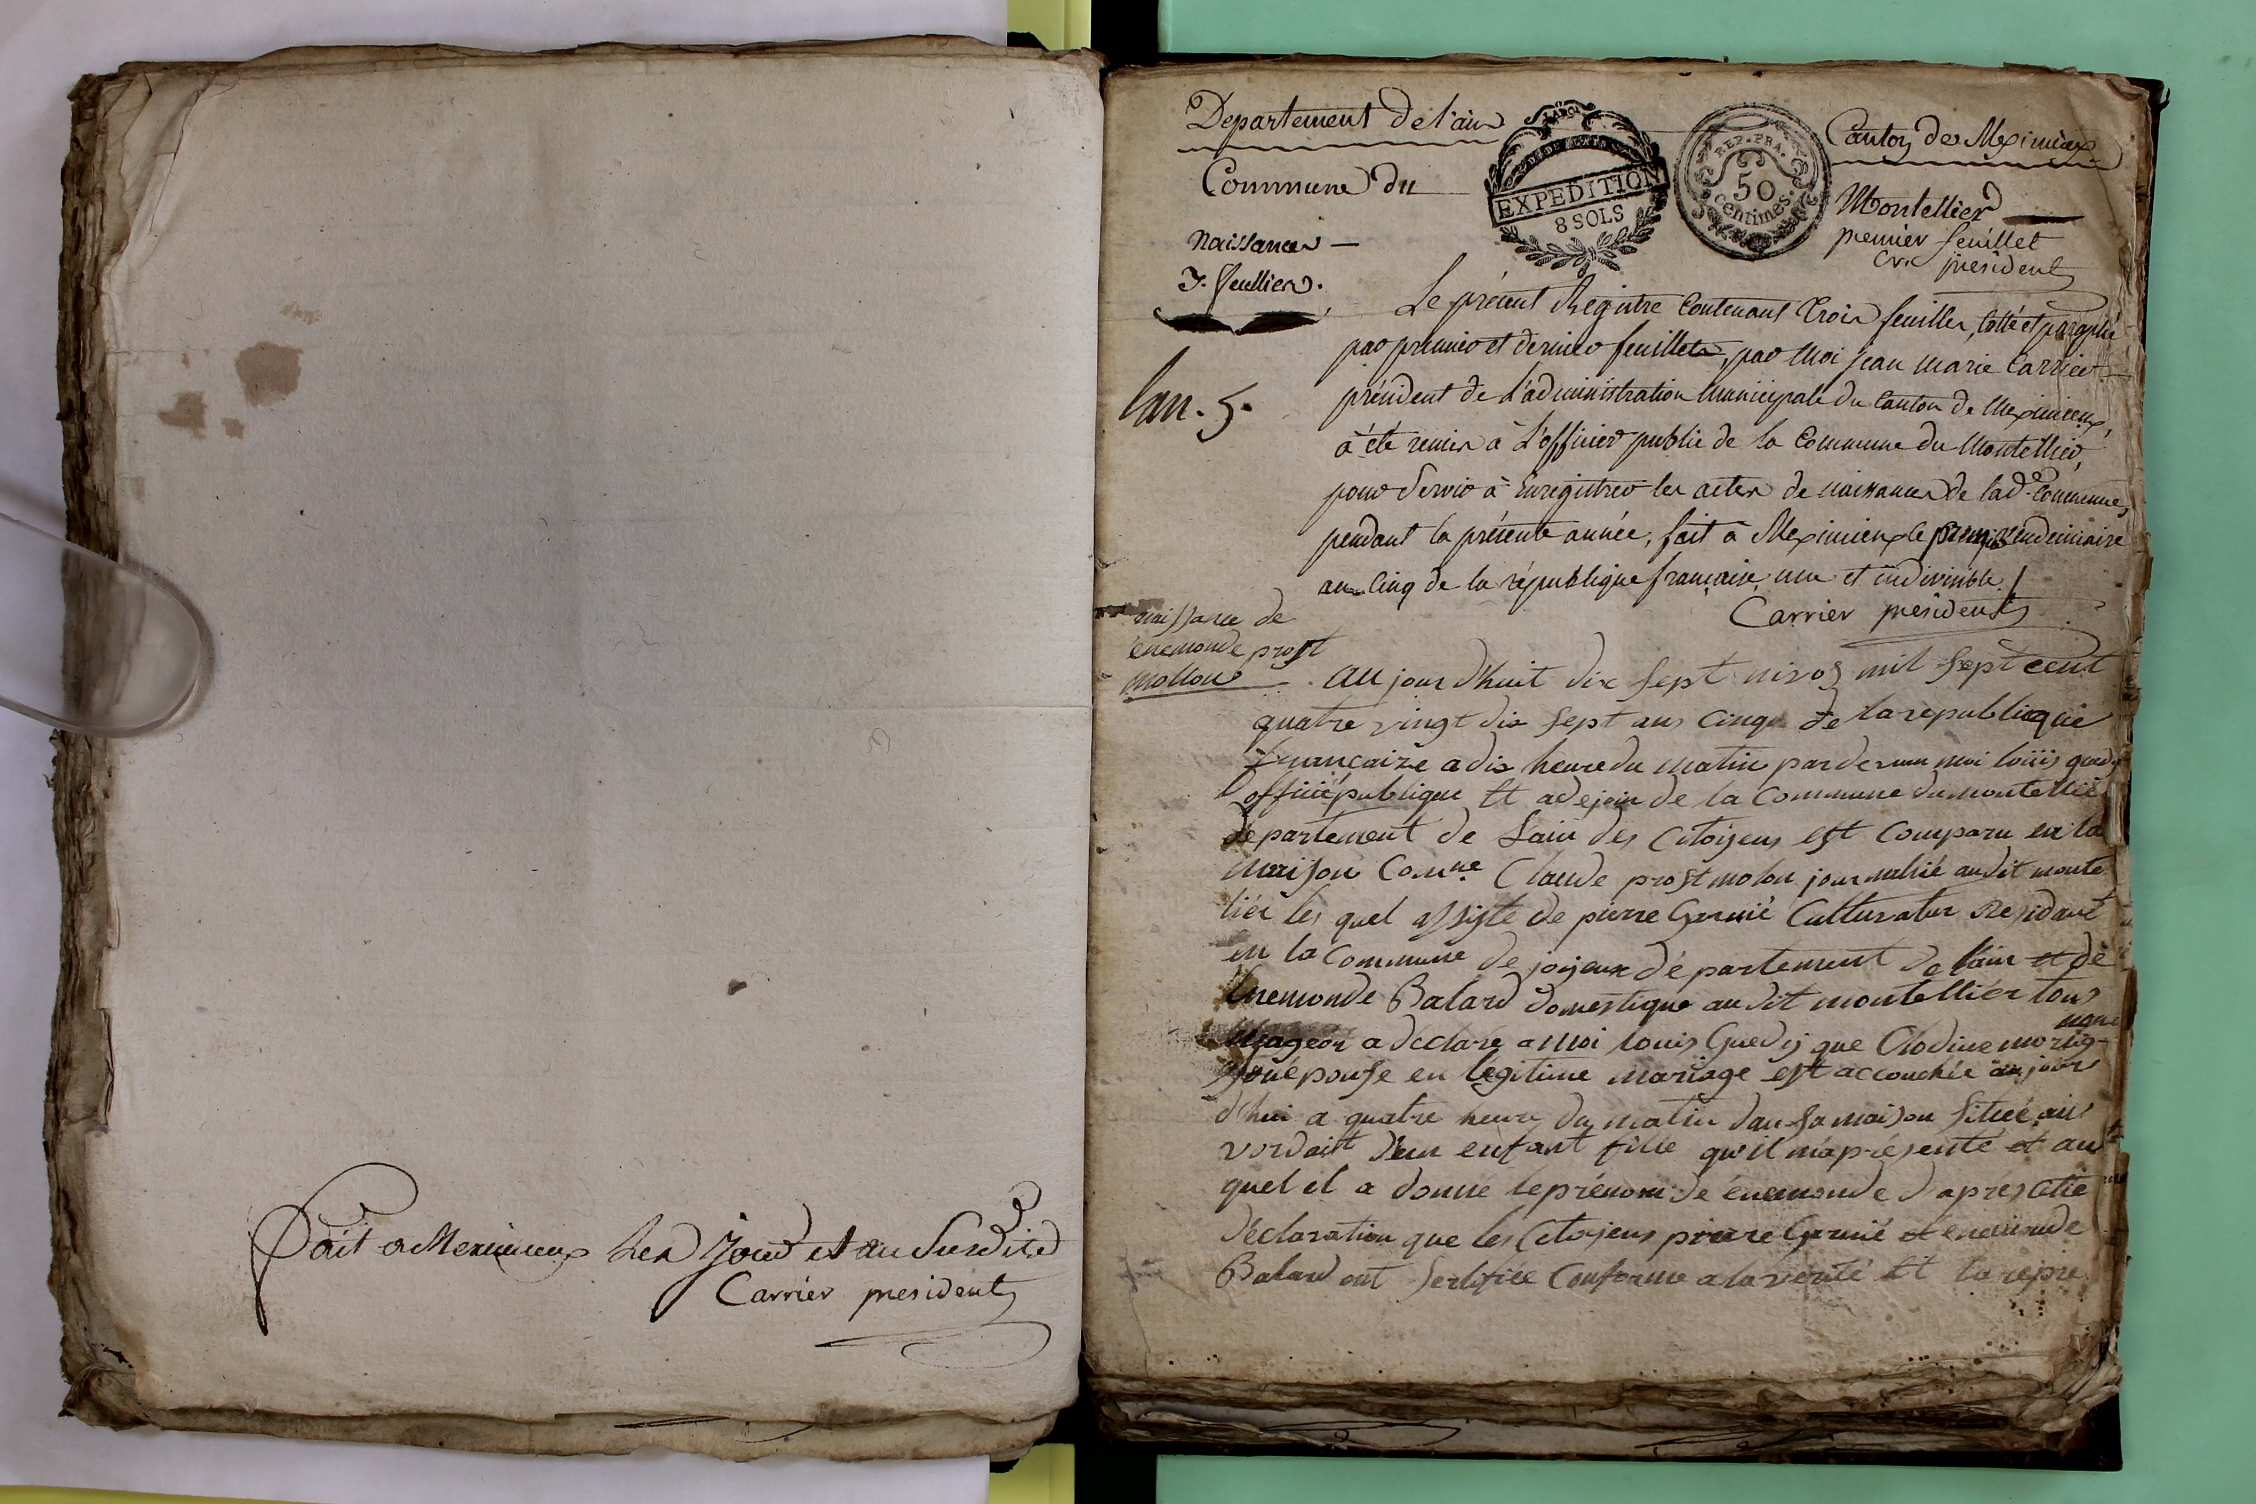 Fait a Meximieux les jour et an susdits
Carrier president
Departement de l'ain
Canton de Meximieux
Commune du
Montellier
EXPEDITION
8 SOLS
REP. FRA.
50
centimes.
Naissances
premier feuillet
president
3. feuilles.
Le présent Registre contenant trois feuilles, cotté et paraphé
par premier et dernier feuillets, par moi jean marie Carrier
président de l'administration municipale du canton de Meximieux,
à été remis à l'officier public de la Commune du Montellier,
lan. 5.
pour servir à Enregistrer les actes de naissances de lad.e Commune,
pendant la présente année, fait à Meximieux le premier vendemiaire
an cinq de la république française une et indivisible /
Carrier president
naissance de
enemonde prost
mollon
aujourd'huit dix sept nivos mil sept cent
quatre vingt dix sept ans cinq de la republicque
françaize a dix heure du matin par devan moi loüis guedy
officié publique Et adejoin de la Commune du montellié
departement de Lain des Citoijens est Comparu en la
maison Com.ne Claude prost molon journallié audit monte
liér les quel assiste de pierre Garnié Cultivatur Residant
en la Commune de joijeux département de lain et de
Enemonde Balard domestique audit montelliér tous
Majeor a déclaré a moi louis Guedij que Clodine morig-
nne
son épouse en légitime mariage est accouchée aujour
dhui a quatre heure du matin dan sa maison située au
vordait d'un enfant fille qu'il m'a présenté et au
quel il a donne le prénom de énemonde d'après cette
déclaration que les Citoijens pierre Garnié et enemonde
Balard ont sertifiée Conforme a la vérité Et la repre